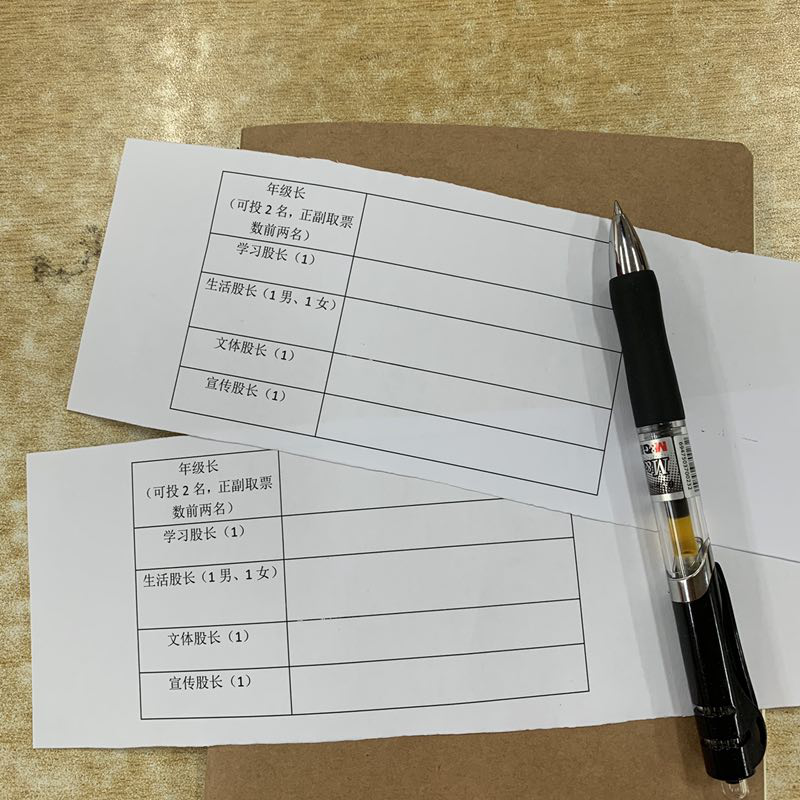 年级长
（可投 2 名，正副取票
数前两名）
学习股长（1）
生活股长（1 男、1 女）
文体股长（1）
宣传股长（1）
年级长
（可投 2 名，正副取票
数前两名）
学习股长（1）
生活股长（1 男、1 女）
文体股长（1）
宣传股长（1）